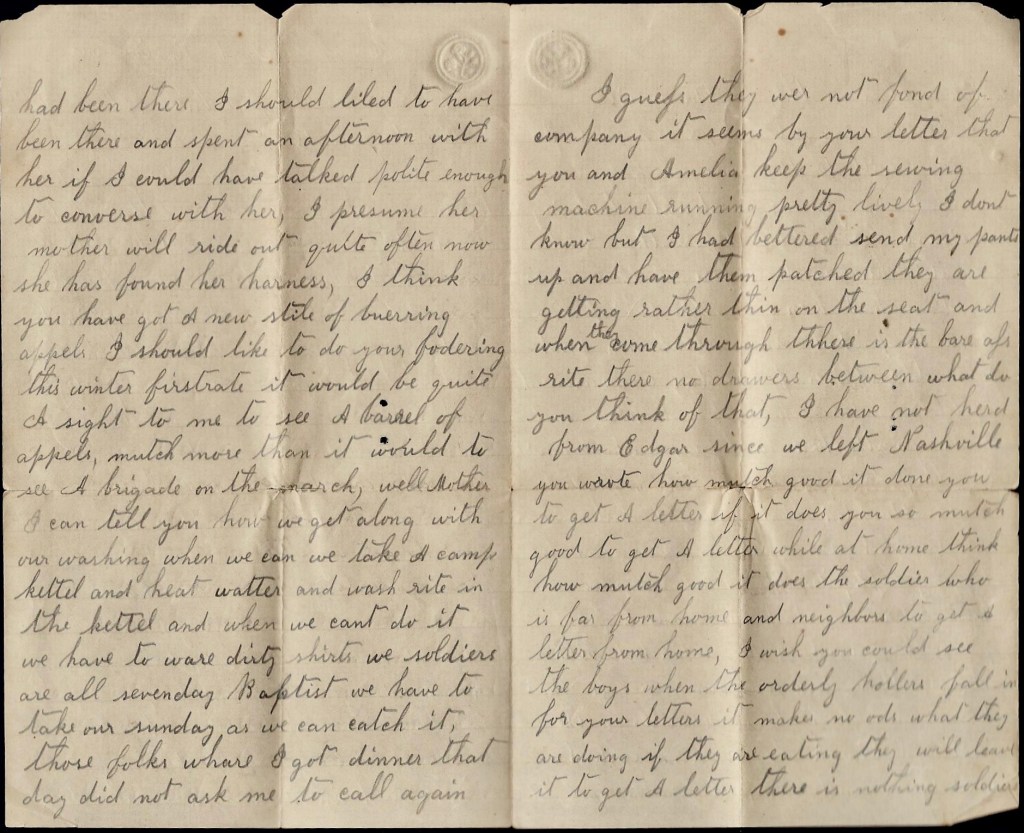 had been there I should liled to have
been there and spent an afternoon with
her if I could have talked polite enough
to converse with her, I presume her
mother will ride out quite often now
she has found her harness, I think
you have got A new stile of buerring
appels I should like to do your fodering
this winter firstrate it would be quite
A sight to me to see A barrel of
appels, mutch more than it would to
see A brigade on the march, well Mother
I can tell you how we get along with
our washing when we can we take A camp
kettel and heat watter and wash rite in
the kettel and when we cant do it
we have to ware dirty shirts we soldiers
are all sevenday Baptist we have to
take our sunday as we can catch it,
those folks whare I got dinner that
day did not ask me to call again
I guess they wer not fond of
company it seems by your letter that
you and Amelia keep the sewing
machine running pretty lively I dont
know but I had bettered send my pants
up and have them patched they are
getting rather thin on the seat and
when they come through thhere is the bare ass
rite there no drawers between what do
you think of that, I have not herd
from Edgar since we left Nashville
you wrote how mutch good it done you
to get A letter if it does you so mutch
good to get A letter while at home think
how mutch good it does the soldier who
is far from home and neighbors to get A
letter from home, I wish you could see
the boys when the orderly hollers fall in
for your letters it makes no ods what they
are doing if they are eating they will leave
it to get A letter there is nothing soldiers